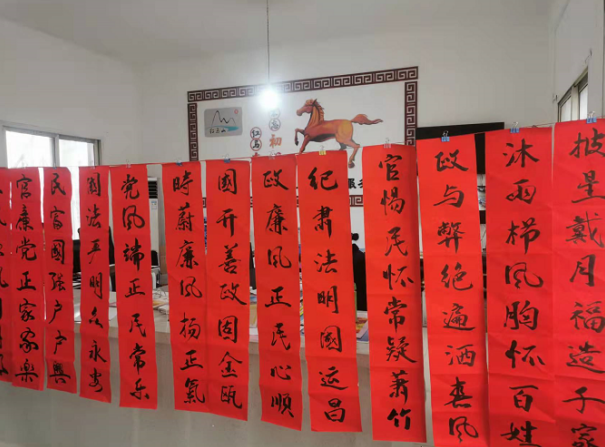 官廉党正家家樂
民富國强户户興
國法严明众永安
党风端正民常乐
時蔚廉风楊正氣
國开善政固金瓯
政廉风正民心顺
纪肃法明國运昌
官惕民怀常疑萧竹
政与弊绝遍洒春风
沐雨栉风胸怀百姓
披星戴月福造千家
初